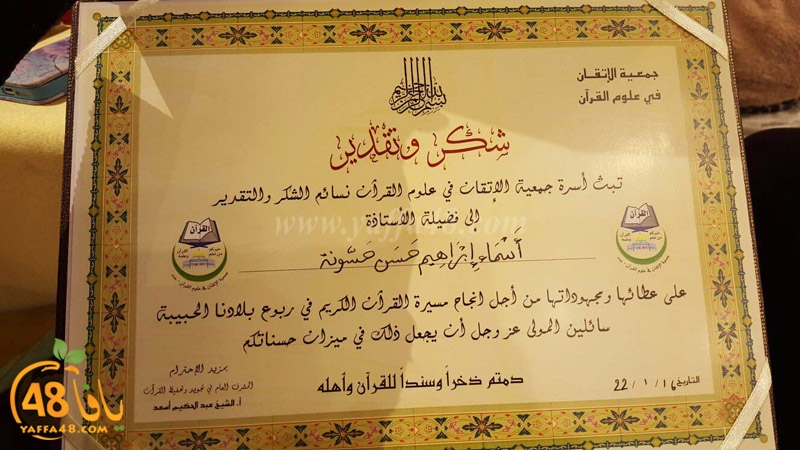 جمعية الإتقان
في علوم القرآن
بسم الله الرحمن الرحيم
شكر وتقدير
تبث أسرة جمعية الإتقان في علوم القرآن نسائم الشكر والتقدير
إلى فضيلة الأستاذة
www.yaffa48.com
أسماء إبراهيم حسن حسونة
القرآن
القرآن
على عطائها ومجهوداتها من أجل انجاح مسيرة القرآن الكريم في ربوع بلادنا الحبيبة
سائلين المولى عز وجل أن يجعل ذلك في ميزان حسناتكم
دمتم ذخراً وسنداً للقرآن وأهله
التاريخ 22/1/16
بمزيد الإحترام
المشرف العام في تجويد وتحفيظ القرآن
أ. الشيخ عبد الحكيم أسعد
يافا 48
YAFFA48.COM